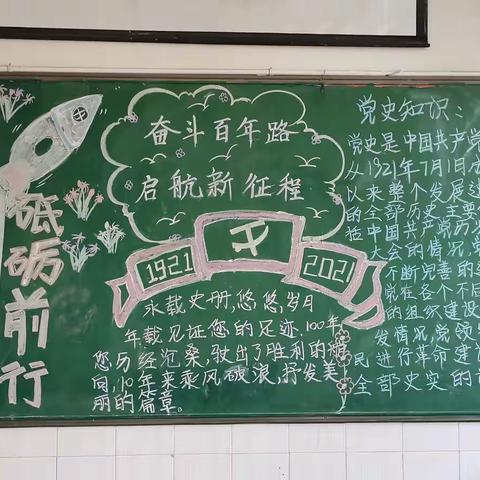 砥砺前行
奋斗百年路
启航新征程
1921
2021
永载史册,悠悠,岁月
年载见证您的足迹.100年
您历经沧桑,驶出了胜利的
向,10年来乘风破浪,抒发美
丽的篇章。
党史知识:
党史是中国共产党
从1921年7月1日成
以来整个发展过
的全部历史主要
括中国共产党历
大会的情况,党
不断完善的
党在各个不同
的组织建设
发情况,党领
民进行革命建设
全部史实的